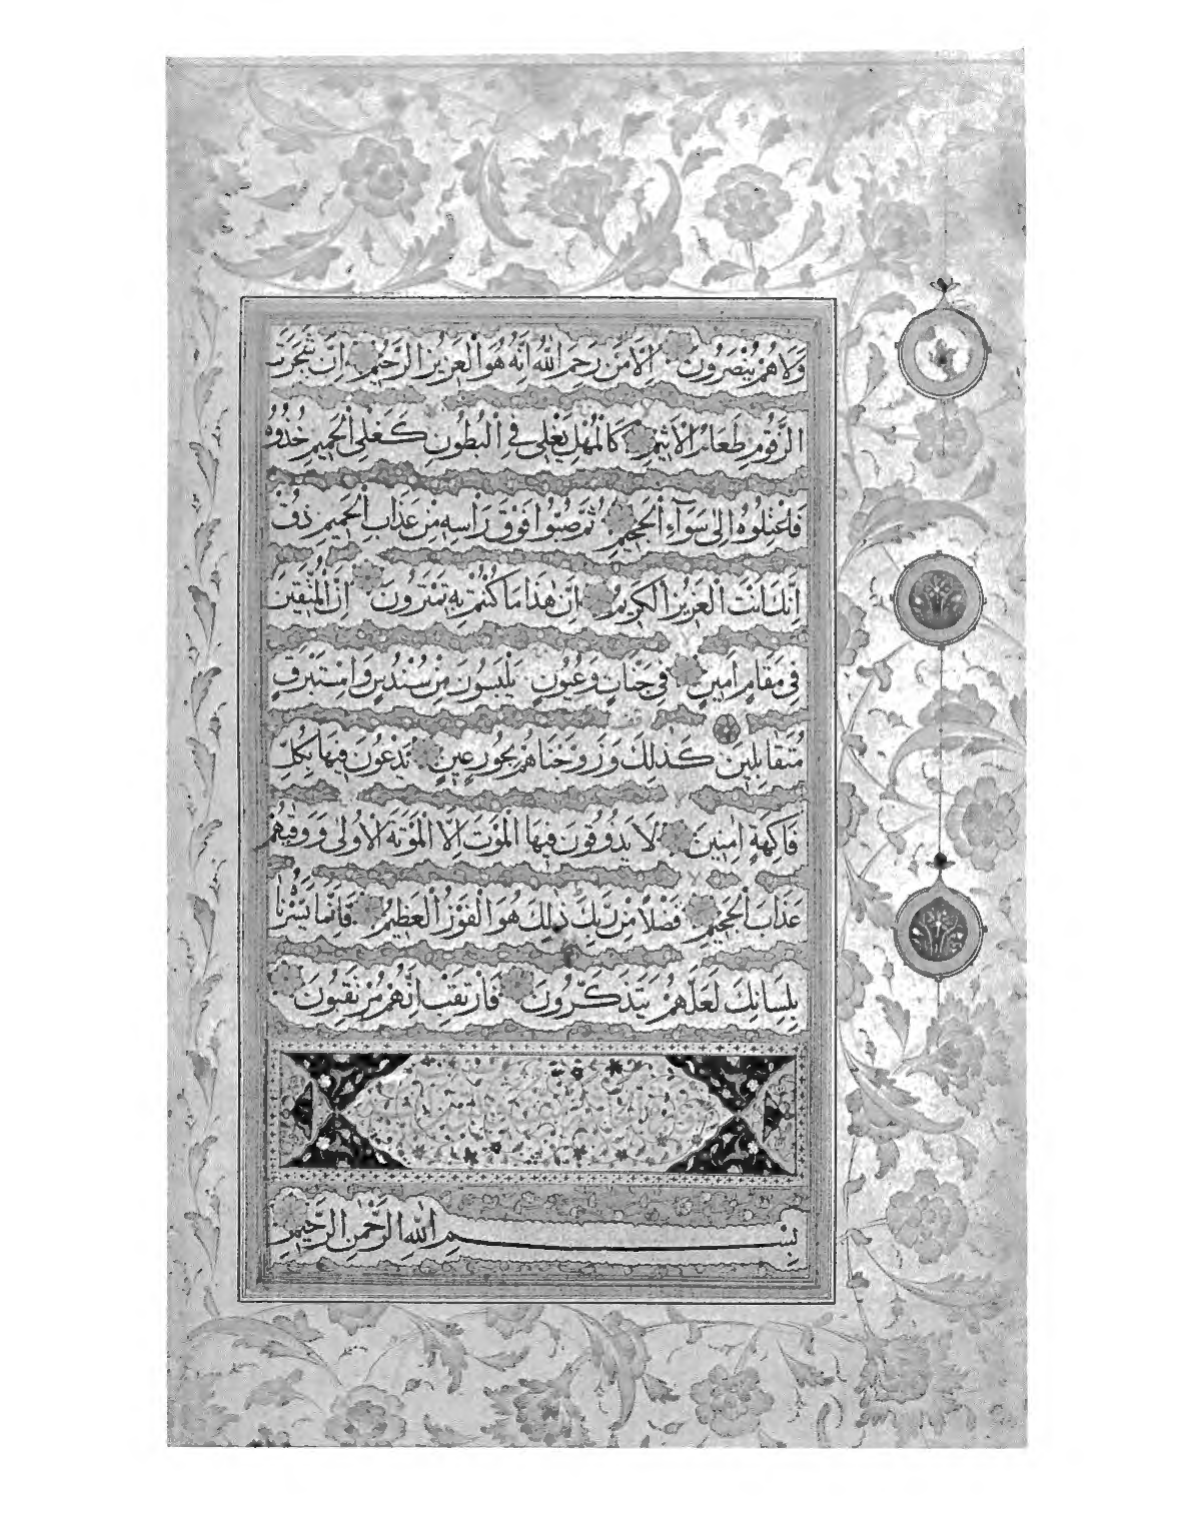 وَلَا هُمْ يُنْصَرُونَ اِلَّا مَنْ رَحِمَ اللّٰهُ اِنَّهُ هُوَ الْعَزِيزُ الرَّحِيمُ اِنَّ شَجَرَتَ
الزَّقُّومِ طَعَامُ الْاَثِيمِ كَالْمُهْلِ يَغْلِي فِي الْبُطُونِ كَغَلْيِ الْحَمِيمِ خُذُوهُ
فَاعْتِلُوهُ اِلٰى سَوَآءِ الْجَحِيمِ ثُمَّ صُبُّوا فَوْقَ رَاْسِهِ مِنْ عَذَابِ الْحَمِيمِ ذُقْ
اِنَّكَ اَنْتَ الْعَزِيزُ الْكَرِيمُ اِنَّ هٰذَا مَا كُنْتُمْ بِهِ تَمْتَرُونَ اِنَّ الْمُتَّقِينَ
فِي مَقَامٍ اَمِينٍ فِي جَنَّاتٍ وَعُيُونٍ يَلْبَسُونَ مِنْ سُنْدُسٍ وَاِسْتَبْرَقٍ
مُتَقَابِلِينَ كَذٰلِكَ وَزَوَّجْنَاهُمْ بِحُورٍ عِينٍ يَدْعُونَ فِيهَا بِكُلِّ
فَاكِهَةٍ اٰمِنِينَ لَا يَذُوقُونَ فِيهَا الْمَوْتَ اِلَّا الْمَوْتَةَ الْاُولٰى وَوَقٰيهُمْ
عَذَابَ الْجَحِيمِ فَضْلًا مِنْ رَبِّكَ ذٰلِكَ هُوَ الْفَوْزُ الْعَظِيمُ فَاِنَّمَا يَسَّرْنَاهُ
بِلِسَانِكَ لَعَلَّهُمْ يَتَذَكَّرُونَ فَارْتَقِبْ اِنَّهُمْ مُرْتَقِبُونَ
بِسْمِ اللّٰهِ الرَّحْمٰنِ الرَّحِيمِ